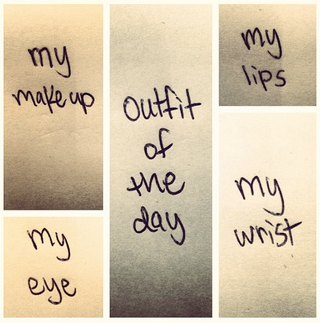 my
makeup
my
eye
outfit
of
the
day
my
lips
my
wrist